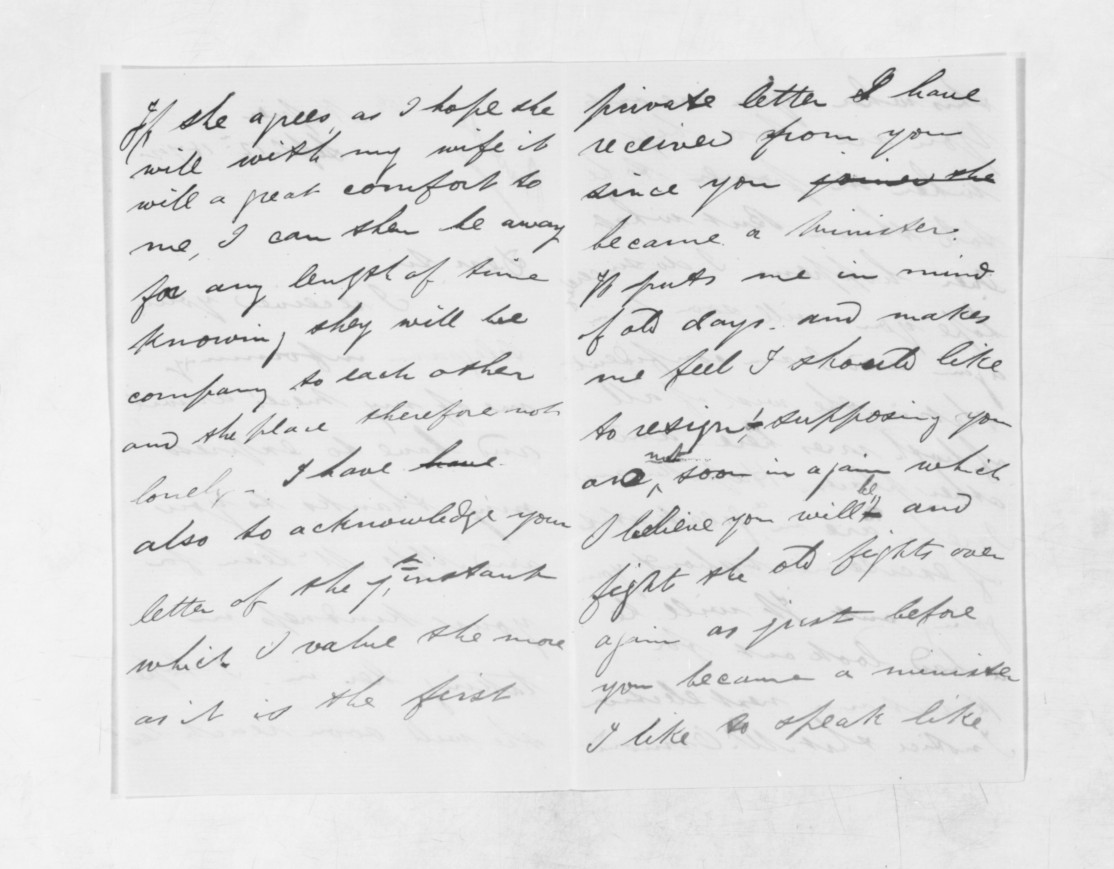 If she agrees, as I hope she
will with my wife it
will a great comfort to
me, I can then be away
for any length of time
knowing they will be
company to each other
and the place therefore not
lonely - I have have
also to acknowledge your
letter of the 7th instant
which I value the more
as it is the first
private letter I have
received from you
since you joined the
became a Minister.
It puts me in mind
of old days and makes
me feel I should like
to resign! supposing you
are not soon in again which
I believe you will be and
fight the old fights over
again as just before
you became a minister
I like to speak like